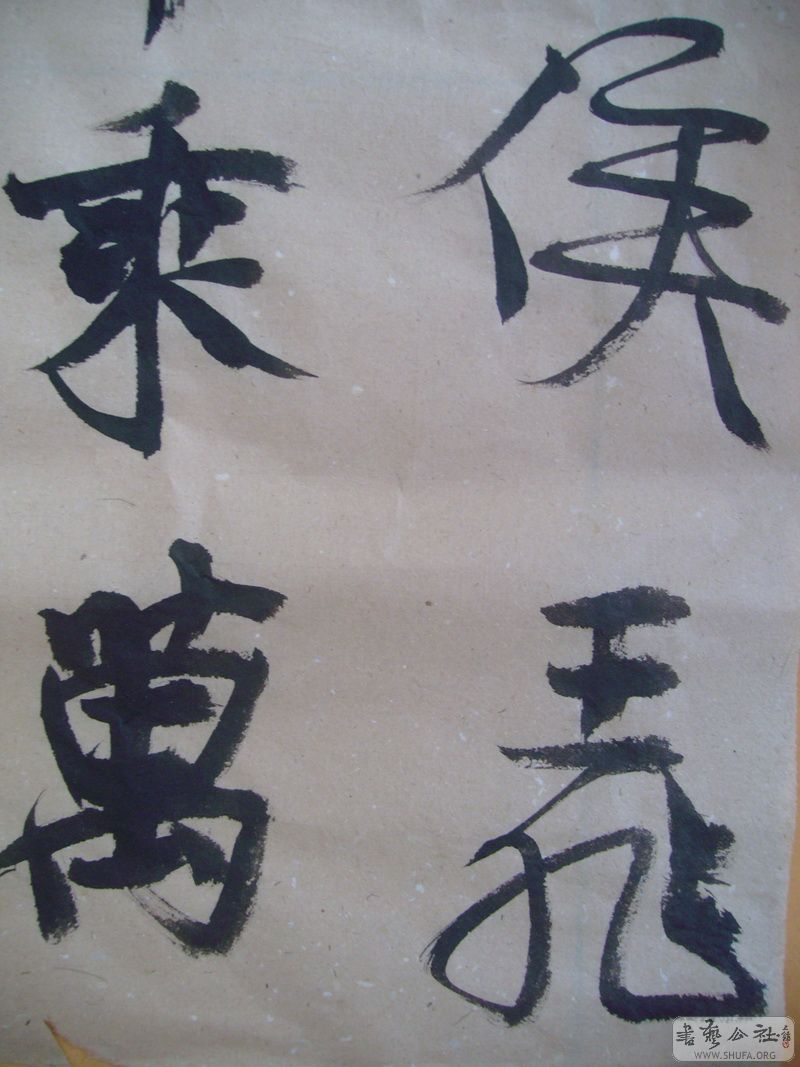 侯王非
乘萬
書藝公社
WWW.SHUFA.ORG